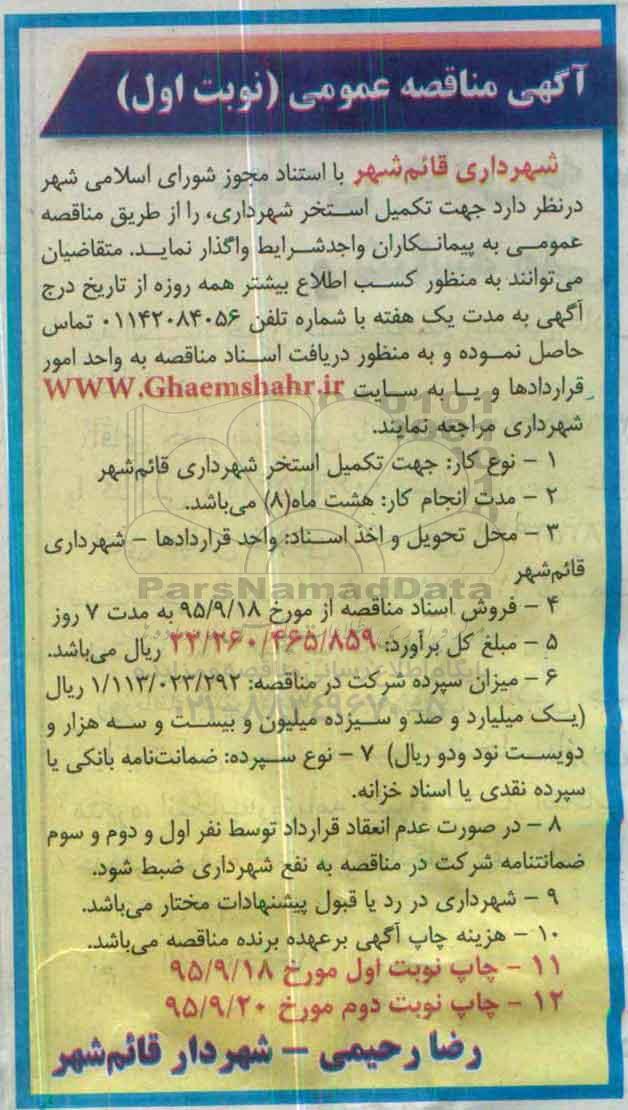 آگهی مناقصه عمومی (نوبت اول)
شهرداری قائم‌شهر با استناد مجوز شورای اسلامی شهر
درنظر دارد جهت تکمیل استخر شهرداری، را از طریق مناقصه
عمومی به پیمانکاران واجدشرایط واگذار نماید. متقاضیان
می‌توانند به منظور کسب اطلاع بیشتر همه روزه از تاریخ درج
آگهی به مدت یک هفته با شماره تلفن ۰۱۱۴۲۰۸۴۰۵۶ تماس
حاصل نموده و به منظور دریافت اسناد مناقصه به واحد امور
قراردادها و یا به سایت WWW.Ghaemshahr.ir
شهرداری مراجعه نمایند.
۱ – نوع کار: جهت تکمیل استخر شهرداری قائم‌شهر
۲ – مدت انجام کار: هشت ماه(۸) می‌باشد.
۳ – محل تحویل و اخذ اسناد: واحد قراردادها – شهرداری
قائم‌شهر
ParsNamadData
۴ – فروش اسناد مناقصه از مورخ ۹۵/۹/۱۸ به مدت ۷ روز
۵ – مبلغ کل برآورد: ۲۲/۲۶۰/۴۶۵/۸۵۹ ریال می‌باشد.
۶ – میزان سپرده شرکت در مناقصه: ۱/۱۱۳/۰۲۳/۲۹۲ ریال
(یک میلیارد و صد و سیزده میلیون و بیست و سه هزار و
دویست نود ودو ریال) ۷ – نوع سپرده: ضمانت‌نامه بانکی یا
سپرده نقدی یا اسناد خزانه.
۸ – در صورت عدم انعقاد قرارداد توسط نفر اول و دوم و سوم
ضمانتنامه شرکت در مناقصه به نفع شهرداری ضبط شود.
۹ – شهرداری در رد یا قبول پیشنهادات مختار می‌باشد.
۱۰ – هزینه چاپ آگهی برعهده برنده مناقصه می‌باشد.
۱۱ – چاپ نوبت اول مورخ ۹۵/۹/۱۸
۱۲ – چاپ نوبت دوم مورخ ۹۵/۹/۲۰
رضا رحیمی – شهردار قائم‌شهر